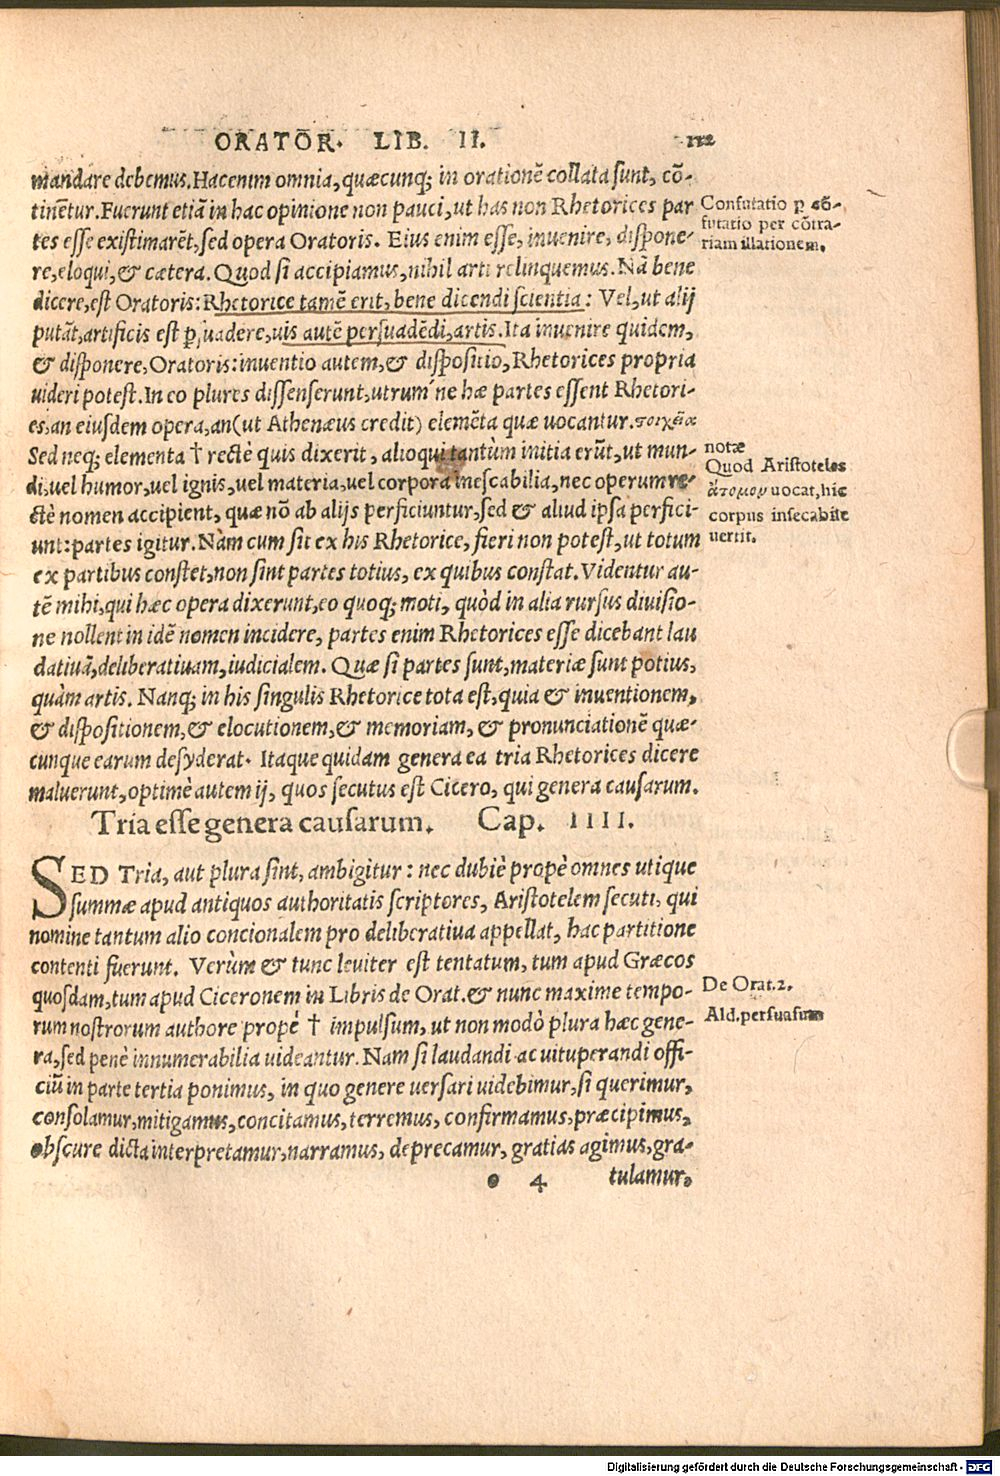 ORATOR̄. LIB. II. 112
mandare debemus. Hac enim omnia, quæcunq; in orationē collata sunt, cō-
tinētur. Fuerunt etiā in hac opinione non pauci, ut has non Rhetorices par
tes esse existimarēt, sed opera Oratoris. Eius enim esse, inuenire, dispone-
re, eloqui, & cætera. Quod si accipiamus, nihil arti relinquemus. Nā bene
dicere, est Oratoris: Rhetorice tamē erit, bene dicendi scientia: Vel, ut alij
putāt, artificis est ꝑsuadere, uis autē persuadēdi, artis. Ita inuenire quidem,
& disponere, Oratoris: inuentio autem, & dispositio, Rhetorices propria
uideri potest. In eo plures dissenserunt, utrum'ne hæ partes essent Rhetori-
es, an eiusdem opera, an (ut Athenæus credit) elemēta quæ uocantur. στοιχεῖα
Sed neq; elementa † rectè quis dixerit, alioqui tantùm initia erūt, ut mun-
di, uel humor, uel ignis, uel materia, uel corpora inescabilia, nec operum re-
ctè nomen accipient, quæ nō ab alijs perficiuntur, sed & aliud ipsa perfici-
unt: partes igitur. Nàm cum sit ex his Rhetorice, fieri non potest, ut totum
ex partibus constet, non sint partes totius, ex quibus constat. Videntur au-
tē mihi, qui hæc opera dixerunt, eo quoq; moti, quòd in alia rursus diuisio-
ne nollent in idē nomen incidere, partes enim Rhetorices esse dicebant lau
datiuā, deliberatiuam, iudicialem. Quæ si partes sunt, materiæ sunt potius,
quàm artis. Nanq; in his singulis Rhetorice tota est, quia & inuentionem,
& dispositionem, & elocutionem, & memoriam, & pronunciationē quæ-
cunque earum desyderat. Itaque quidam genera ea tria Rhetorices dicere
maluerunt, optimè autem ij, quos secutus est Cicero, qui genera causarum.
Tria esse genera causarum. Cap. IIII.
SED Tria, aut plura sint, ambigitur: nec dubiè propè omnes utique
summæ apud antiquos authoritatis scriptores, Aristotelem secuti, qui
nomine tantum alio concionalem pro deliberatiua appellat, hac partitione
contenti fuerunt. Verùm & tunc leuiter est tentatum, tum apud Græcos
quosdam, tum apud Ciceronem in Libris de Orat. & nunc maxime tempo-
rum nostrorum authore propè † impulsum, ut non modò plura hæc gene-
ra, sed penè innumerabilia uideantur. Nam si laudandi ac uituperandi offi-
ciū in parte tertia ponimus, in quo genere uersari uidebimur, si querimur,
consolamur, mitigamus, concitamus, terremus, confirmamus, præcipimus,
obscure dicta interpretamur, narramus, deprecamur, gratias agimus, gra-
o 4 tulamur,
Confutatio ꝑ cō-
futatio per cōtra-
riam illationem.
notæ
Quod Aristoteles
ἄτομον uocat, hic
corpus insecabile
uertit.
De Orat. 2.
Ald. persuasum
Digitalisierung gefördert durch die Deutsche Forschungsgemeinschaft - DFG